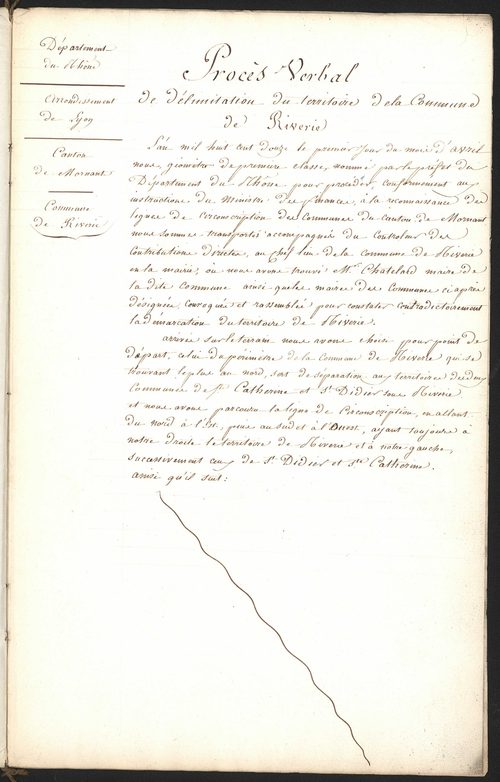 Département
du Rhône
Arrondissement
de Lyon
Canton
de Mornant
Commune
de Riverie
Procès Verbal
de délimitation du territoire de la Commune
de Riverie
L'an mil huit cent douze le premier jour du mois d'avril
nous géomètre de première classe, nommé par le préfet du
Département du Rhône pour procéder, conformément aux
instructions du Ministre des finances, à la reconnaissance des
lignes de circonscription des Communes du Canton de Mornant
nous sommes transportés accompagnés du Controleur des
Contributions directes, au chef lieu de la commune de Riverie
en la mairie; où nous avons trouvé Mr. Chatelard maire de
la dite Commune ainsi que les maires des Communes ci après
désignées, convoqués et rassemblés pour constater contradictoirement
la démarcation du territoire de Riverie.
arrivés sur le terrain nous avons choisi pour point de
départ, celui du périmètre de la Commune de Riverie qui se
trouvant le plus au nord, sert de séparation aux territoires des deux
Communes de Ste Catherine et St Didier sous Riverie
et nous avons parcouru la ligne de Circonscription, en allant
du nord à l'est, puis au sud et à l'Ouest, ayant toujours à
notre droite le territoire de Riverie et à notre gauche,
successivement ceux de St Didier et Ste Catherine.
ainsi qu'il suit: